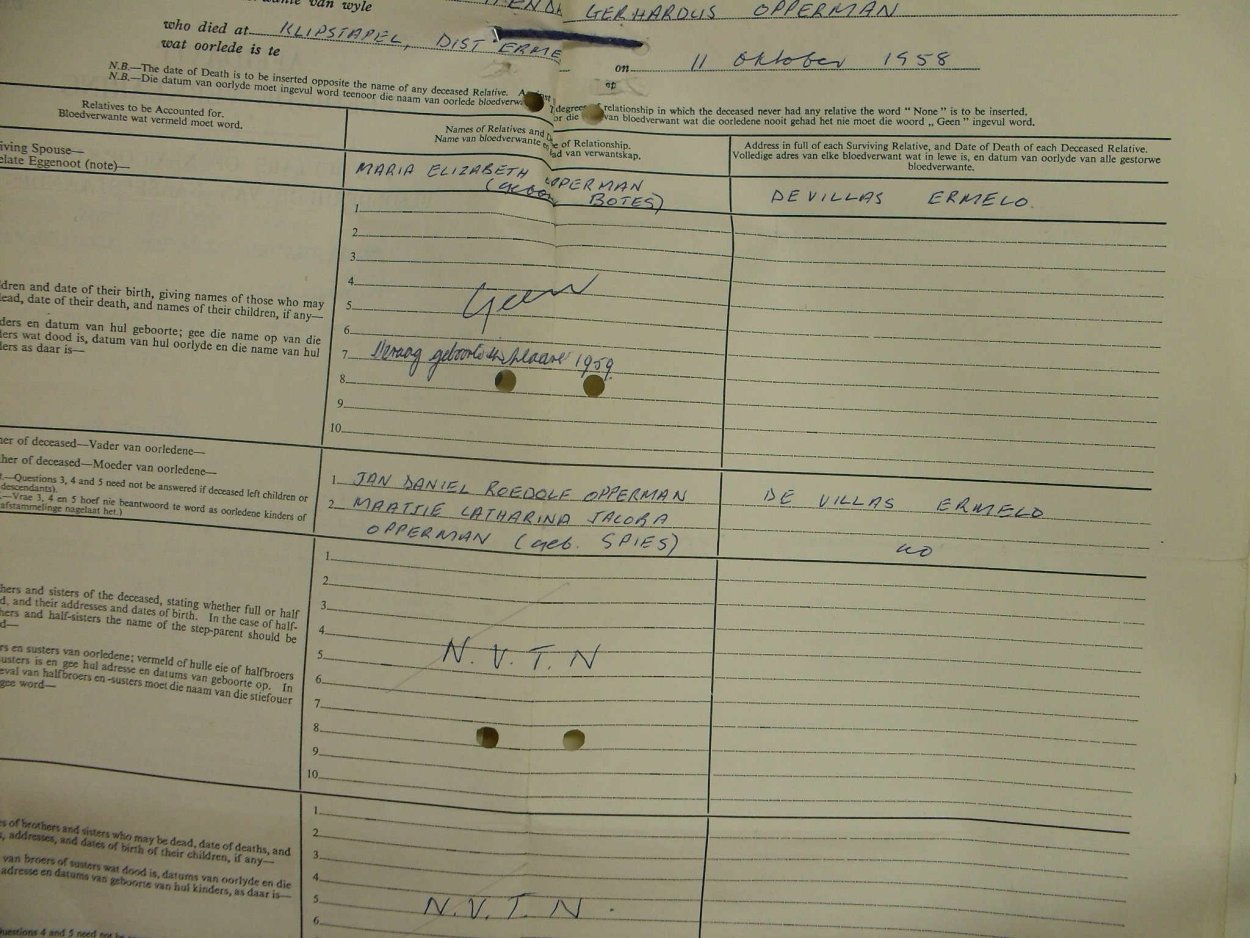 van wyle
GERHARDUS OPPERMAN
who died at KLIPSTAPEL, DIST ERME
wat oorlede is te
on 11 Oktober 1958
op
N.B.—The date of Death is to be inserted opposite the name of any deceased Relative.
degree of relationship in which the deceased never had any relative the word "None" is to be inserted.
N.B.—Die datum van oorlyde moet ingevul word teenoor die naam van oorlede bloedverw
or die van bloedverwant wat die oorledene nooit gehad het nie moet die woord „Geen" ingevul word.
Relatives to be Accounted for.
Bloedverwante wat vermeld moet word.
Names of Relatives and
e of Relationship.
Name van bloedverwante en
ad van verwantskap.
Address in full of each Surviving Relative, and Date of Death of each Deceased Relative.
Volledige adres van elke bloedverwant wat in lewe is, en datum van oorlyde van alle gestorwe
bloedverwante.
iving Spouse—
elate Eggenoot (note)—
MARIA ELIZABETH OPPERMAN
(gebore BOTES)
DEVILLAS ERMELO.
dren and date of their birth, giving names of those who may
ead, date of their death, and names of their children, if any—
ders en datum van hul geboorte; gee die name op van die
ers wat dood is, datum van hul oorlyde en die name van hul
ers as daar is—
1
2
3
4
Geen
5
6
7 1959
8
9
10
er of deceased—Vader van oorledene—
her of deceased—Moeder van oorledene—
—Questions 3, 4 and 5 need not be answered if deceased left children or
descendants).
—Vrae 3, 4 en 5 hoef nie beantwoord te word as oorledene kinders of
afstammelinge nagelaat het.)
1 JAN DANIEL ROEDOLF OPPERMAN
DE VILLAS ERMELO
2 MAATTIE CATHARINA JACOBA
OPPERMAN (geb. SPIES)
do
hers and sisters of the deceased, stating whether full or half
d, and their addresses and dates of birth. In the case of half-
hers and half-sisters the name of the step-parent should be
d—
rs en susters van oorledene; vermeld of hulle eie of halfbroers
usters is en gee hul adresse en datums van geboorte op. In
eval van halfbroers en -susters moet die naam van die stiefouer
gee word—
1
2
3
4
5 N.V.T.N
6
7
8
9
10
es of brothers and sisters who may be dead, date of deaths, and
s, addresses, and dates of birth of their children, if any—
van broers of susters wat dood is, datums van oorlyde en die
adresse en datums van geboorte van hul kinders, as daar is—
1
2
3
4
5 N.V.T.N.
6
uestions 4 and 5 need not be